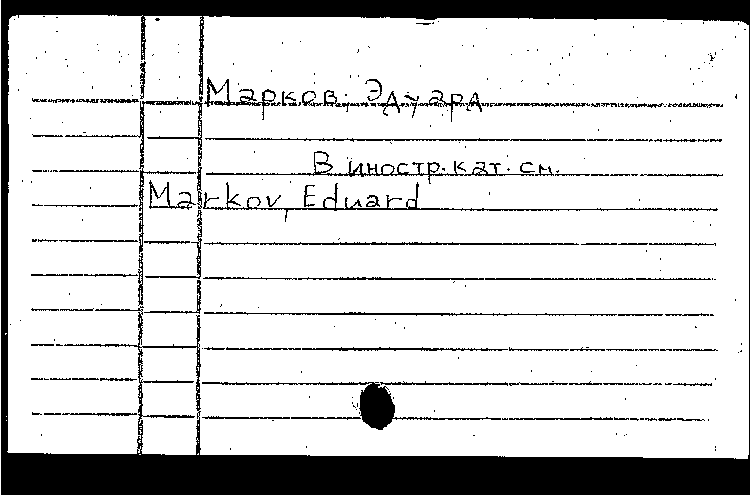 Марков, Эдуард
В иностр. кат. см.
Markov, Eduard